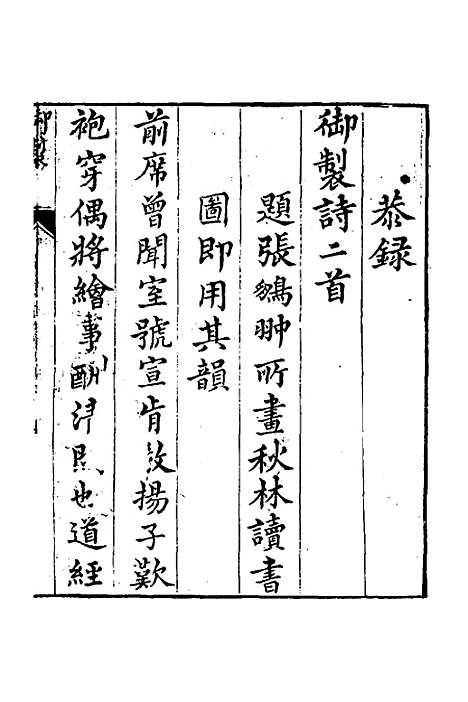 恭録
御製詩二首
題張鵷翀所畫秋林讀書
圖即用其韻
前席曾聞室號宣肯教揚子歎
袍穿偶將繪事酬也道經